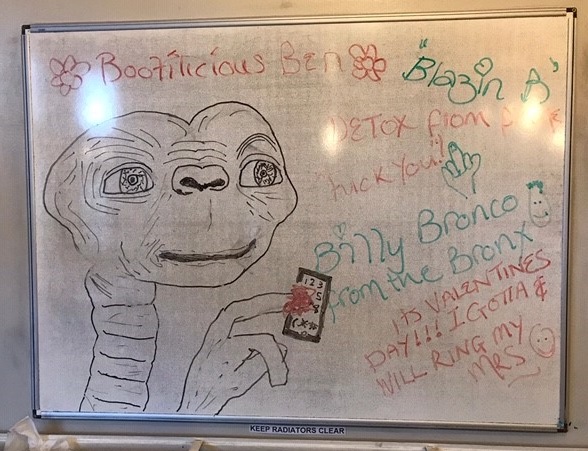 Bootilicious Ben
"Blazin B"
DETOX from
FUCK YOU"!
Billy Bronco
from the Bronx
1 2 3
5
8
ITS VALENTINES
DAY!!! I GOTTA &
WILL RING MY
MRS
KEEP RADIATORS CLEAR